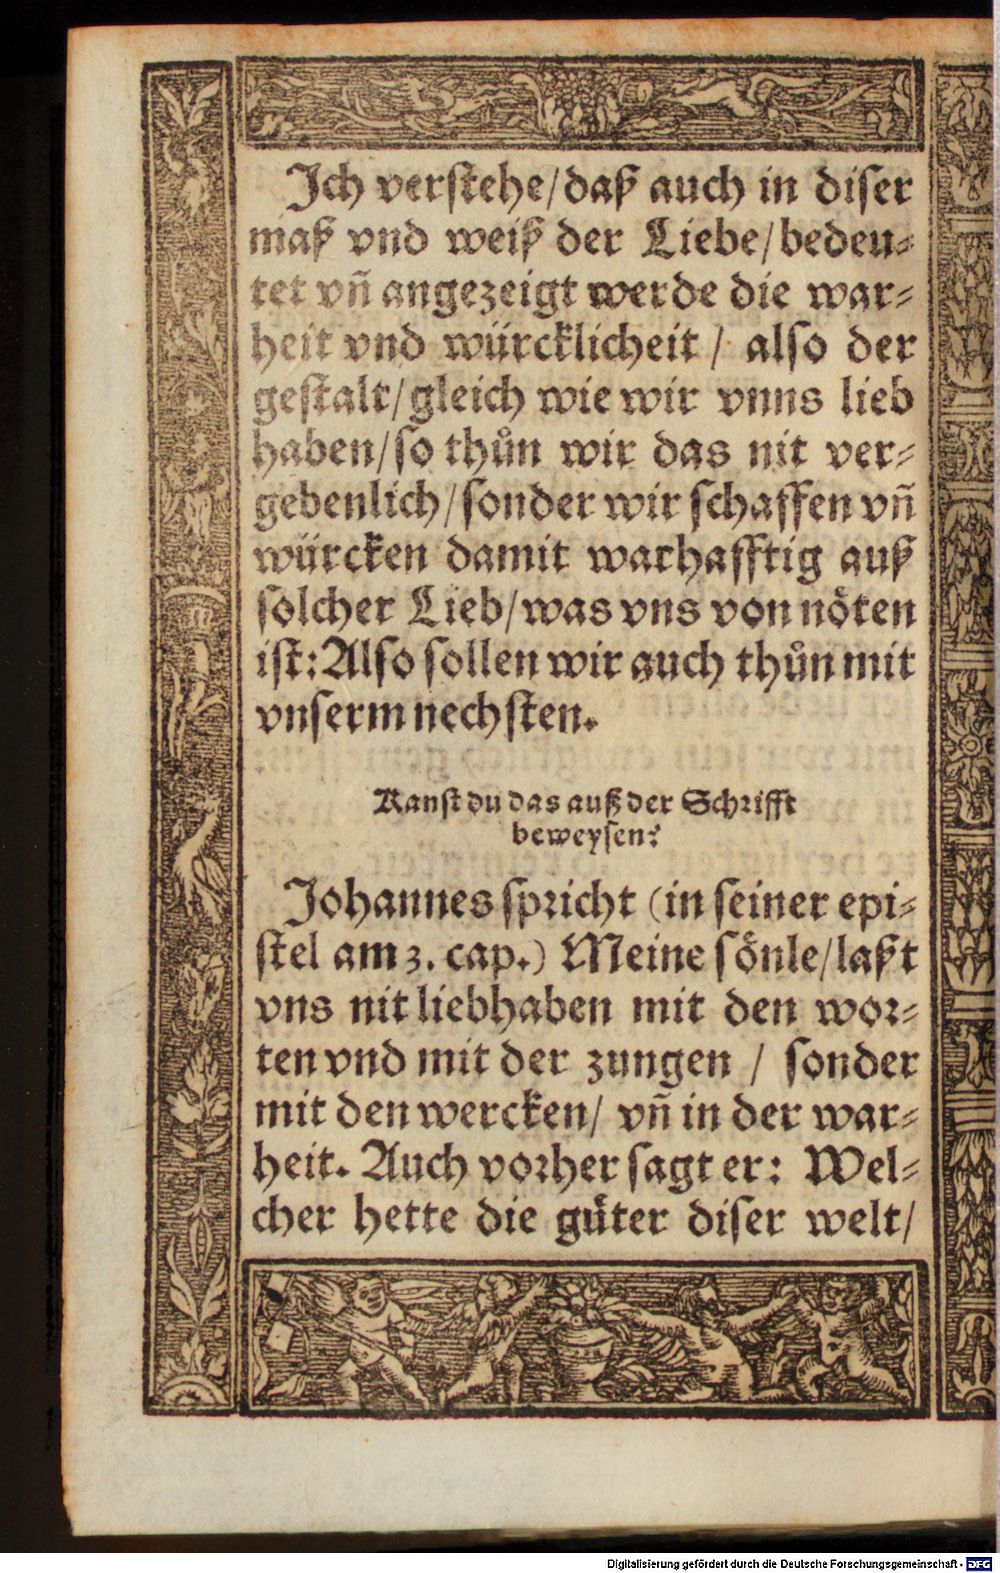 Ich verstehe/daß auch in diser
maß vnd weiß der Liebe/bedeu⸗
tet vñ angezeigt werde die war⸗
heit vnd würcklicheit / also der
gestalt/gleich wie wir vnns lieb
haben/so thůn wir das nit ver⸗
gebenlich/sonder wir schaffen vñ
würcken damit warhafftig auß
solcher Lieb/was vns von nöten
ist: Also sollen wir auch thůn mit
vnserm nechsten.
Kanst du das auß der Schrifft
beweysen?
Johannes spricht (in seiner epi⸗
stel am 3. cap.) Meine sönle/laßt
vns nit liebhaben mit den wor⸗
ten vnd mit der zungen / sonder
mit den wercken/ vñ in der war⸗
heit. Auch vorher sagt er: Wel⸗
cher hette die güter diser welt/
Digitalisierung gefördert durch die Deutsche Forschungsgemeinschaft - DFG